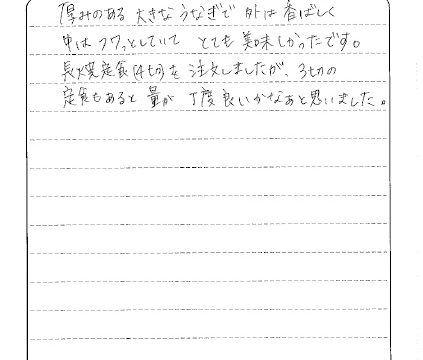 厚みのある 大きなうなぎで 外は 香ばしく
中は フワっとしていて とても 美味しかったです。
長焼定食(4切)を 注文しましたが、3切の
定食もあると 量が 丁度良いかなぁと思いました。